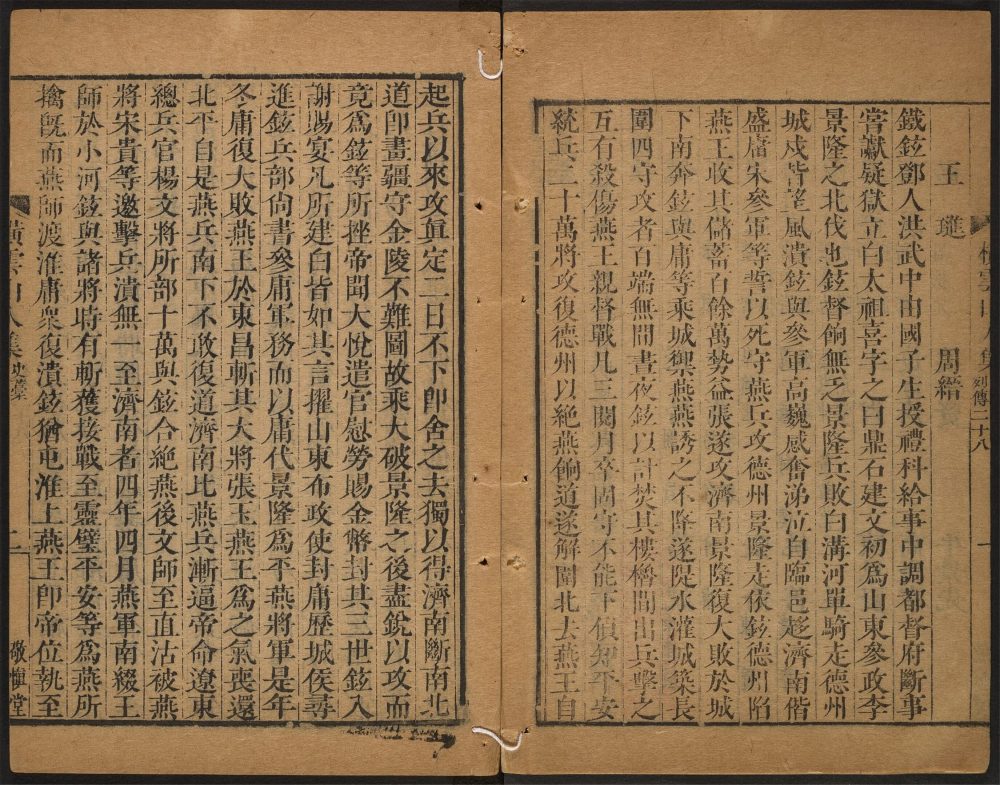 橫雲山人集 列傳二十八 一
王璡 周縉
鐵鉉鄧人洪武中由國子生授禮科給事中調都督府斷事
嘗讞疑獄立白太祖喜字之曰鼎石建文初爲山東參政李
景隆之北伐也鉉督餉無乏景隆兵敗白溝河單騎走德州
城戍皆望風潰鉉與參軍高巍感奮涕泣自臨邑趍濟南偕
盛庸宋參軍等誓以死守燕兵攻德州景隆走依鉉德州陷
燕王收其儲蓄百餘萬勢益張遂攻濟南景隆復大敗於城
下南奔鉉與庸等乘城禦燕燕誘之不降遂隄水灌城築長
圍四守攻者百端無間晝夜鉉以計焚其樓櫓間出兵擊之
互有殺傷燕王親督戰凡三閱月卒固守不能下偵知平安
統兵二十萬將攻復德州以絶燕餉道遂解圍北去燕王自
起兵以來攻眞定二日不下卽舍之去獨以得濟南斷南北
道卽畫疆守金陵不難圖故乘大破景隆之後盡銳以攻而
竟爲鉉等所挫帝聞大悅遣官慰勞賜金幣封其三世鉉入
謝賜宴凡所建白皆如其言擢山東布政使封庸歷城侯尋
進鉉兵部尙書參庸軍務而以庸代景隆爲平燕將軍是年
冬庸復大敗燕王於東昌斬其大將張玉燕王爲之氣喪還
北平自是燕兵南下不敢復道濟南比燕兵漸逼帝命遼東
總兵官楊文將所部十萬與鉉合絶燕後文師至直沽被燕
將宋貴等邀擊兵潰無一至濟南者四年四月燕軍南綴王
師於小河鉉與諸將時有斬獲接戰至靈璧平安等爲燕所
擒旣而燕師渡淮庸衆復潰鉉猶屯淮上燕王卽帝位執至
橫雲山人集 史藁 二 敬愼堂